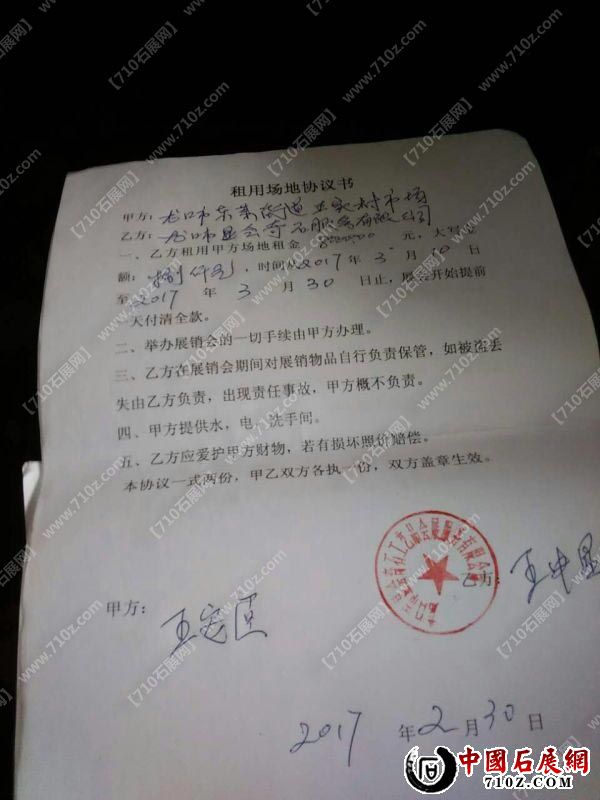 租用场地协议书
甲方：龙口市东莱街道 村市场
乙方：龙口市 奇石服务有限公司
一、乙方租用甲方场地租金 元，大写金
额：捌仟元，时间从2017 年 3 月 10 日
至2017 年 3 月 30 日止，展会开始提前
天付清全款。
二、举办展销会的一切手续由甲方办理。
三、乙方在展销会期间对展销物品自行负责保管，如被盗丢
失由乙方负责，出现责任事故，甲方概不负责。
四、甲方提供水，电，洗手间。
五、乙方应爱护甲方财物，若有损坏照价赔偿。
本协议一式两份，甲乙双方各执一份，双方盖章生效。
乙方：王中
甲方：王
2017 年2月30日
中國石展網
710Z.COM
【710石展网】
www.710z.com